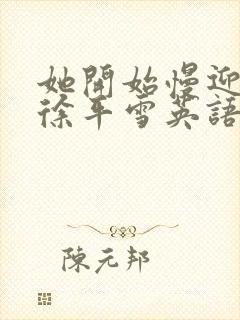 她開始慢迎
徐平雪英語
陳元邦